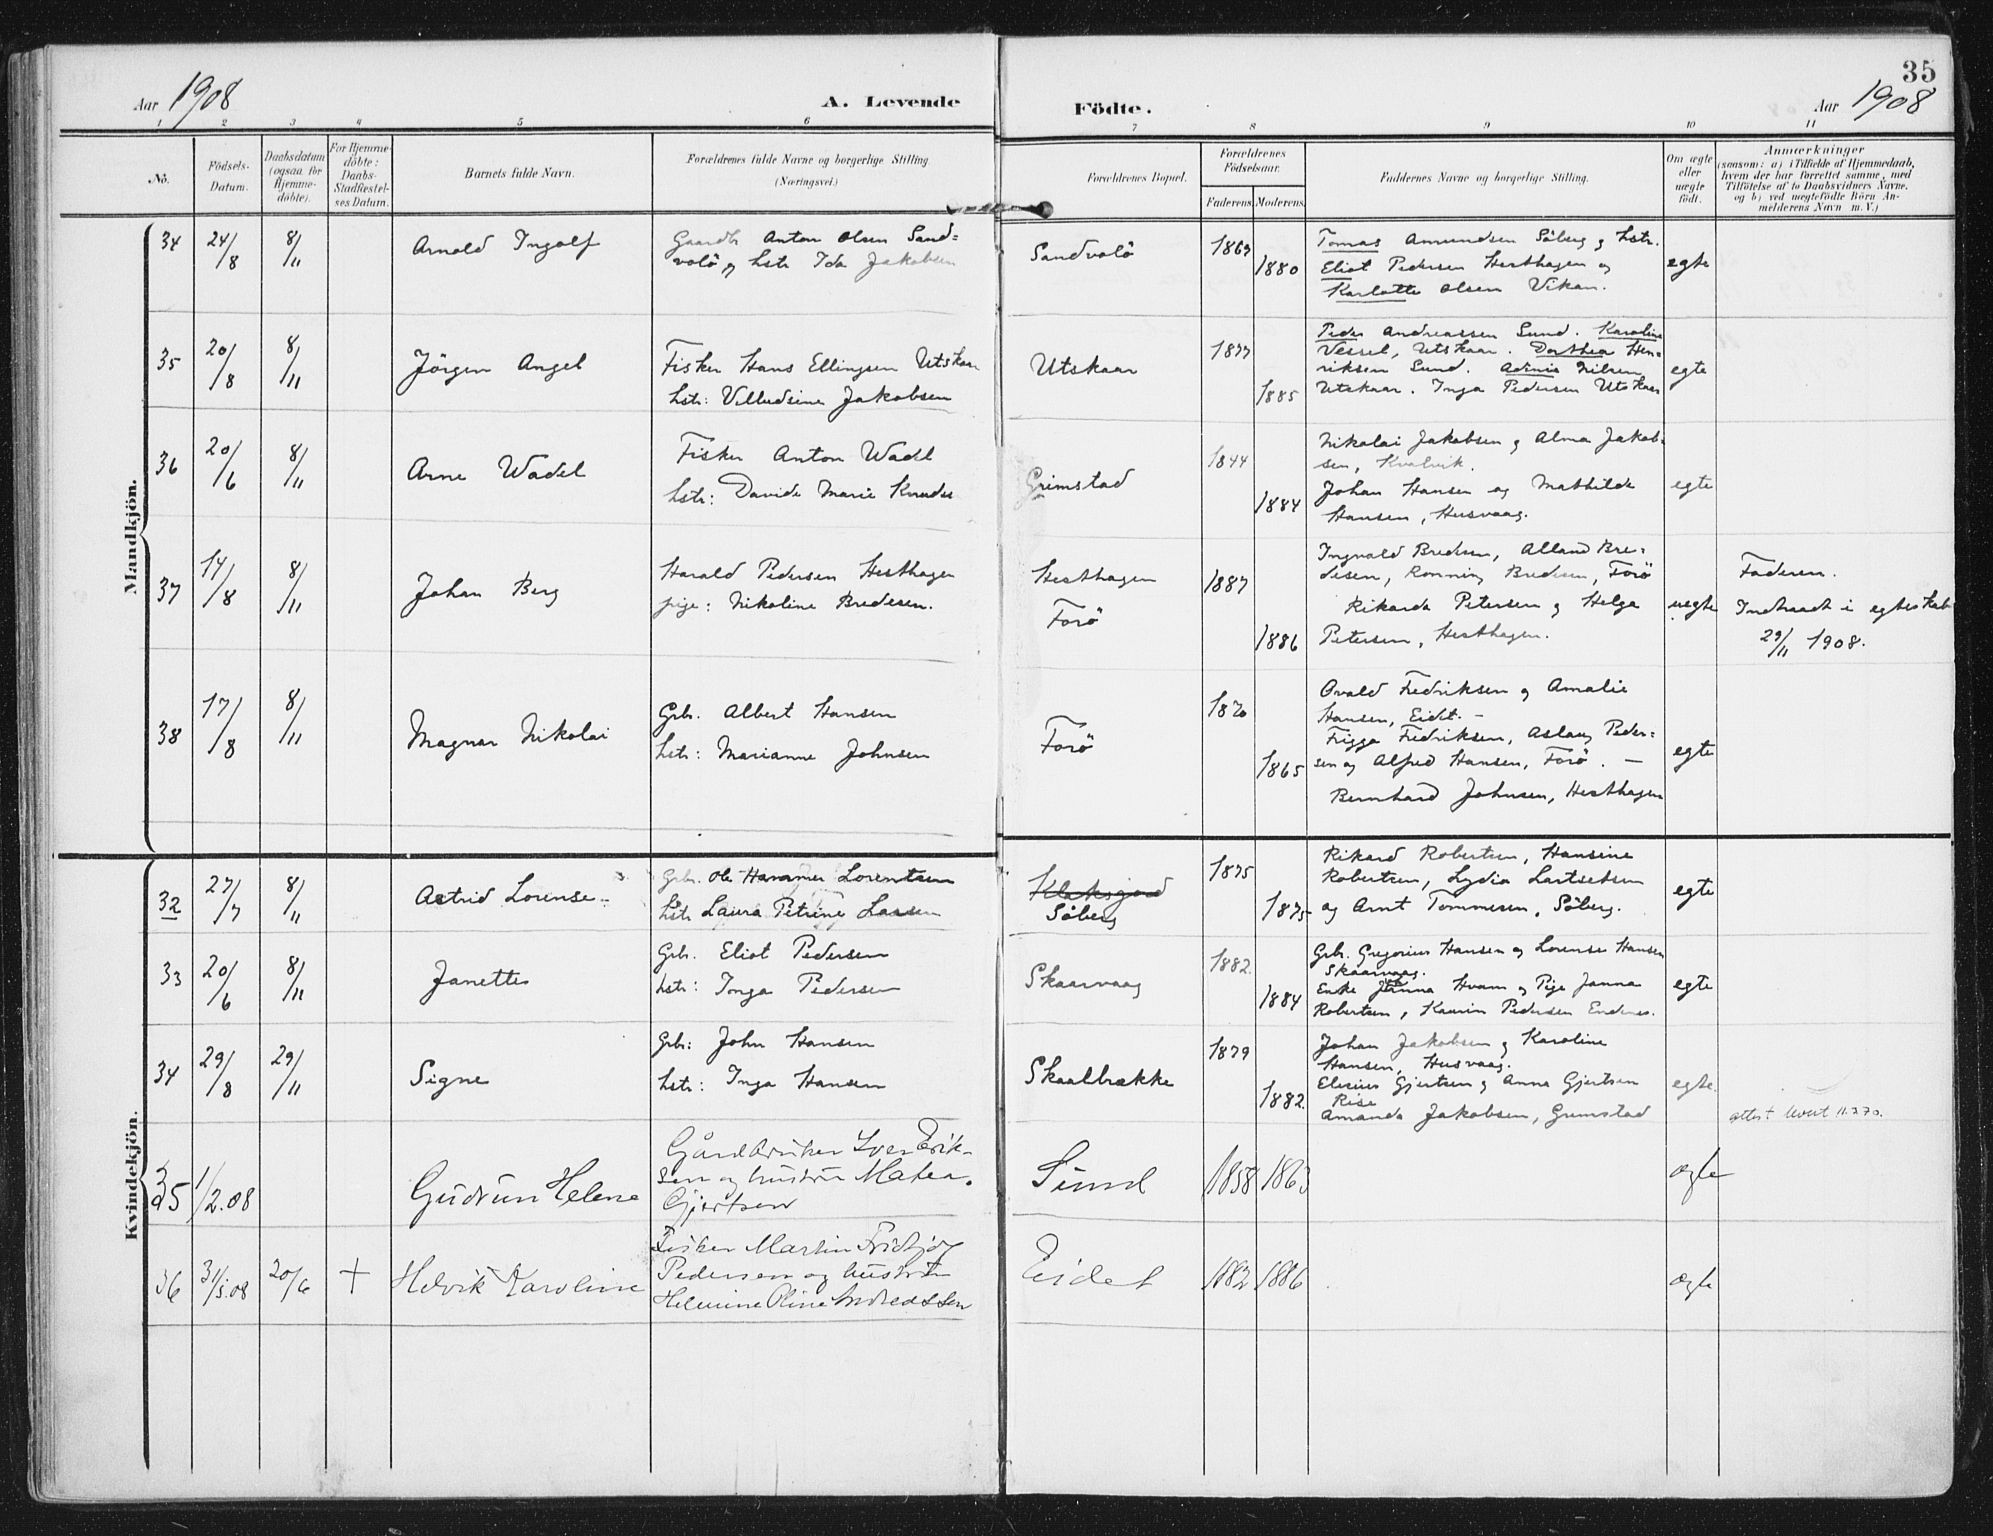 35
Aar 1908
A. Levende
Födte.
Aar 1908
1 2 3 4 5 6 7 8 9 10 11
No.
Födsels-
Datum.
Daabsdatum
(ogsaa for
Hjemme-
döbte).
For Hjemme-
döbte:
Daabs-
Stadfæstel-
ses Datum.
Barnets fulde Navn.
Forældrenes fulde Navne og borgerlige Stilling.
(Næringsvei.)
Forældrenes Bopæl.
Forældrenes
Födselsaar.
Faderens. Moderens.
Faddernes Navne og borgerlige Stilling.
Om ægte
eller
uægte
födt.
Anmærkninger
(saasom: a) i Tilfælde af Hjemmedaab,
hvem der har forrettet samme, med
Tilföielse af to Daabsvidners Navne.
og b) ved uægtefödte Börn An-
melderens Navn m. V.)
Mandkjön.
34 24/8 8/11 Arnold Ingolf
Gaardb Anton Olsen Sand=
volö og hstr Ida Jakobsen
Sandvolö
1880
Tomas Amundsen Söberg og hstr.
Eliot Pedersen Hesthagen og
Karlotte Olsen Vikan.
egte
35 20/8 8/11 Jörgen Angel
Fisker Hans Ellingsen Utskaar
hstr: Villudsine Jakobsen
Utskaar
1877
1885
Peder Andreassen Sund. Karoline
Vessel, Utskaar. Dorthea Hen=
riksen Sund. Nilsen
Utskaar. Inga Pedersen Utskaar
egte
36 20/6 8/11 Arne Wadel
Fisker Anton Wadel
hstr: Davide Marie Knuds
Grimstad
1844
1884
Nikolai Jakobsen og Alma Jakob-
sen, Kvalvik.
Johan Hansen og Mathilde
Hansen, Husvaag.
egte
37 14/8 8/11 Johan Berg
Harald Pedersen Hesthagen
pige: Nikoline Bredesen.
Hesthagen
Forö
1887
1886
Ingvald Bredesen, Alland Bre=
desen, Ronning Bredesen, Forö
Rikarda Petersen og Helga
Petersen, Hesthagen.
uegte
Faderen.
Indtraadt i egteskab
29/11 1908.
38 17/8 8/11 Magnar Nikolai
Grb. Albert Hansen
hstr: Marianne Johnsen
Forö
1870
1865
Ovald Fredriksen og Amalie
Hansen, Eidet. –
Frigga Fredriksen, Aslaug Peder=
sen og Alfred Hansen, Forö. –
Bernhard Johnsen, Hesthagen
egte
Kvindekjön.
32 27/7 8/11 Astrid Lorense
Grb. Ole Hammer Lorentsen
hstr Laura Petrine Lassen
Klaksjord
Söberg
1875
1875
Rikard Robertsen, Hansine
Robertsen, Lydia Lartsetsen
og Arnt Tommesen, Söberg.
egte
33 20/6 8/11 Janette
Grb. Eliot Pedersen
hstr: Inga Pedersen
Skaarvaag
1882
1884
Grb. Gregorius Hansen og Lorense Hansen
Skaarvaag.
Enke Jenna Hvam og Pige Janna
Robertsen, Kaurin Pedersen Endenes.
egte
34 29/8 29/11 Signe
Grb: John Hansen
hstr: Inga Hansen
Skaalbrække
1879
1882.
Johan Jakobsen og Karoline
Hansen, Husvaag.
Elesius Gjertsen og Anna Gjertsen
Rise
Amanda Jakobsen, Grimstad
egte.
attest levert 11.2.70.
35 1/2.08 Gudrun Helene
Gårdbruker Iver Erik-
sen og hustru Matea
Gjertsen
Sund
1858 1863
ægte
36 31/5.08 20/6 + Helvik Karoline
Fisker Martin Fridtjof
Pedersen og hustru
Helmine Oline Andreassen
Eidet
1882 1886
ægte